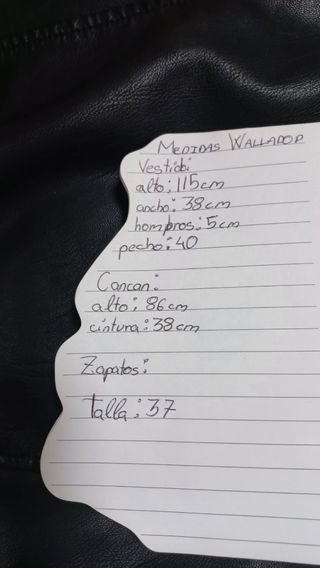 MEDIDAS WALLAPOP
Vestido:
alto: 115cm
ancho: 38cm
hombros: 5cm
pecho: 40
Cancan:
alto: 86cm
cintura: 38cm
Zapatos:
talla: 37